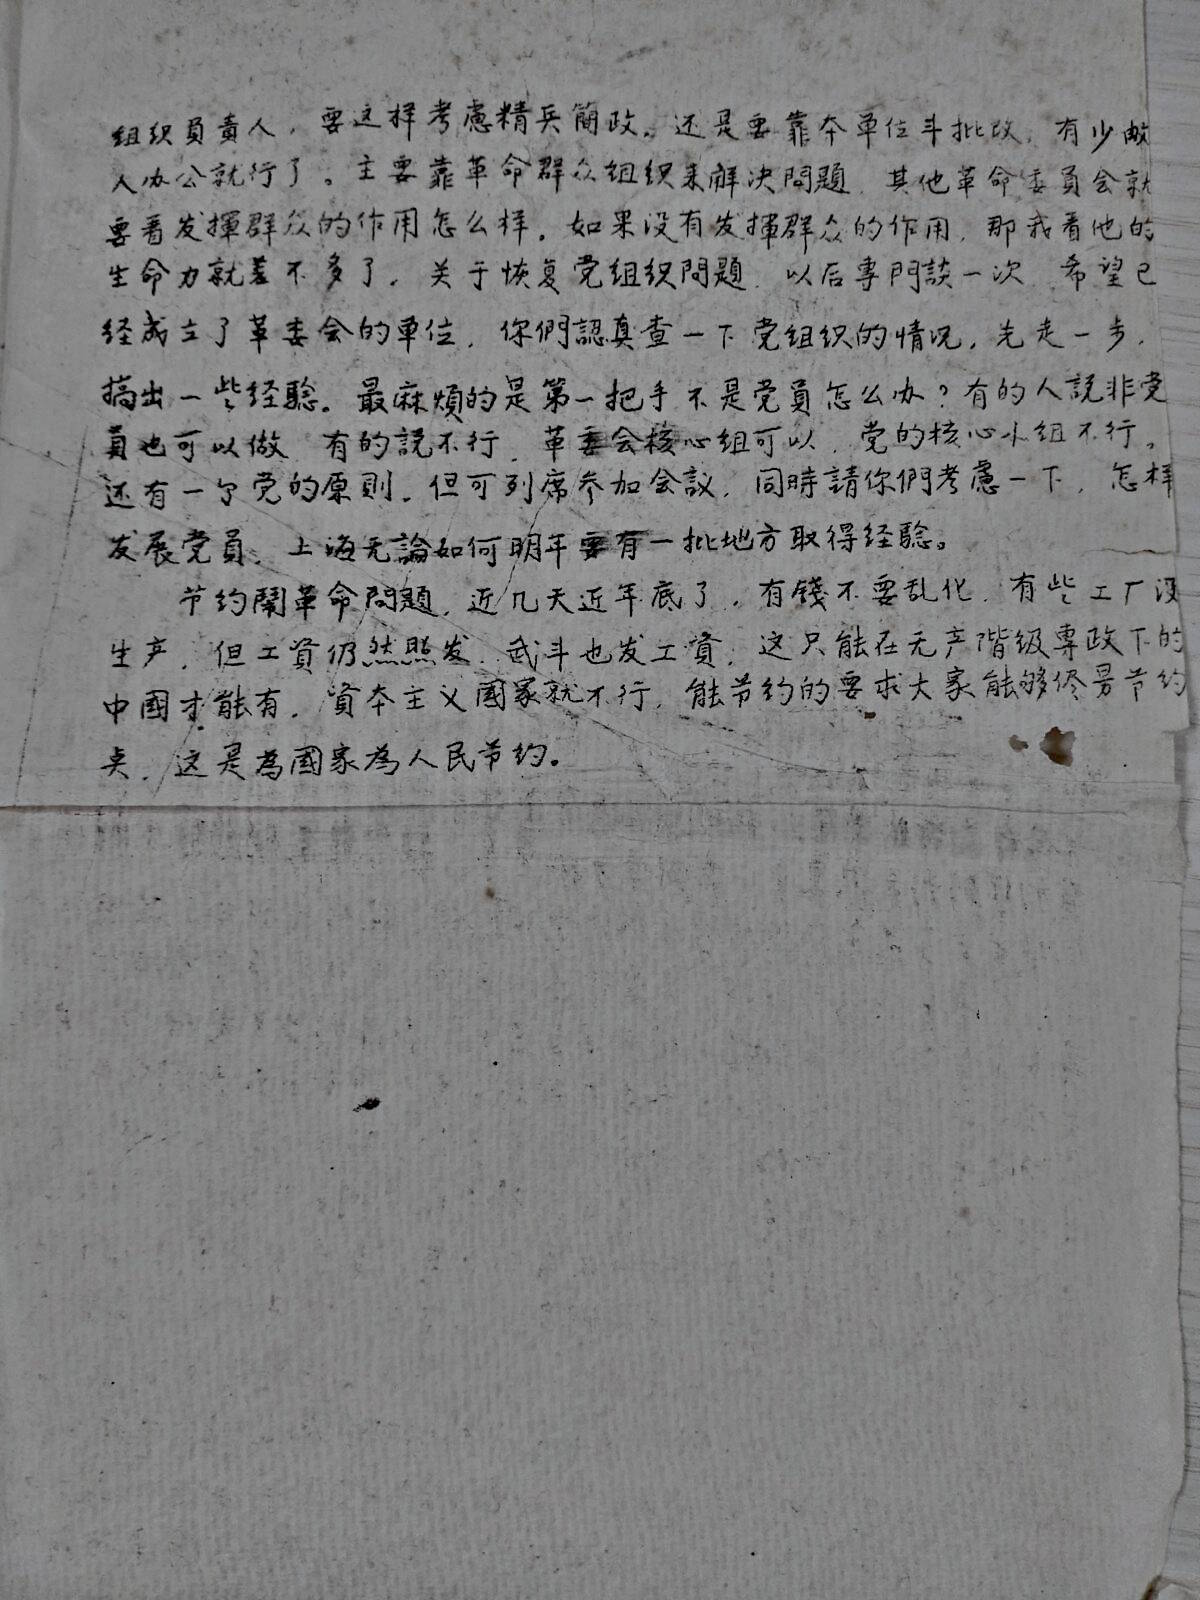 组织員責人，要这样考慮精兵簡政。还是要靠本单位斗批改，有少
人办公就行了。主要靠革命群众组织来解决問題，其他革命委員会就
要看发揮群众的作用怎么样。如果没有发揮群众的作用，那我看他的
生命力就差不多了。关于恢复党组织問題，以后專門談一次，希望已
经成立了革委会的单位，你們認真查一下党组织的情况，先走一步，
搞出一些经驗。最麻煩的是第一把手不是党員怎么办？有的人説非党
員也可以做，有的説不行，革委会核心组可以，党的核心小组不行。
还有一个党的原則，但可列席参加会議，同時請你們考慮一下，怎样
发展党員，上海无論如何明年要有一批地方取得经驗。
节约鬧革命問題，近几天近年底了，有錢不要乱化，有些工厂没
生产，但工資仍然照发，武斗也发工資，这只能在无产階级專政下的
中國才能有，資本主义國家就不行，能节约的要求大家能够侭量节约
点，这是為國家為人民节约。